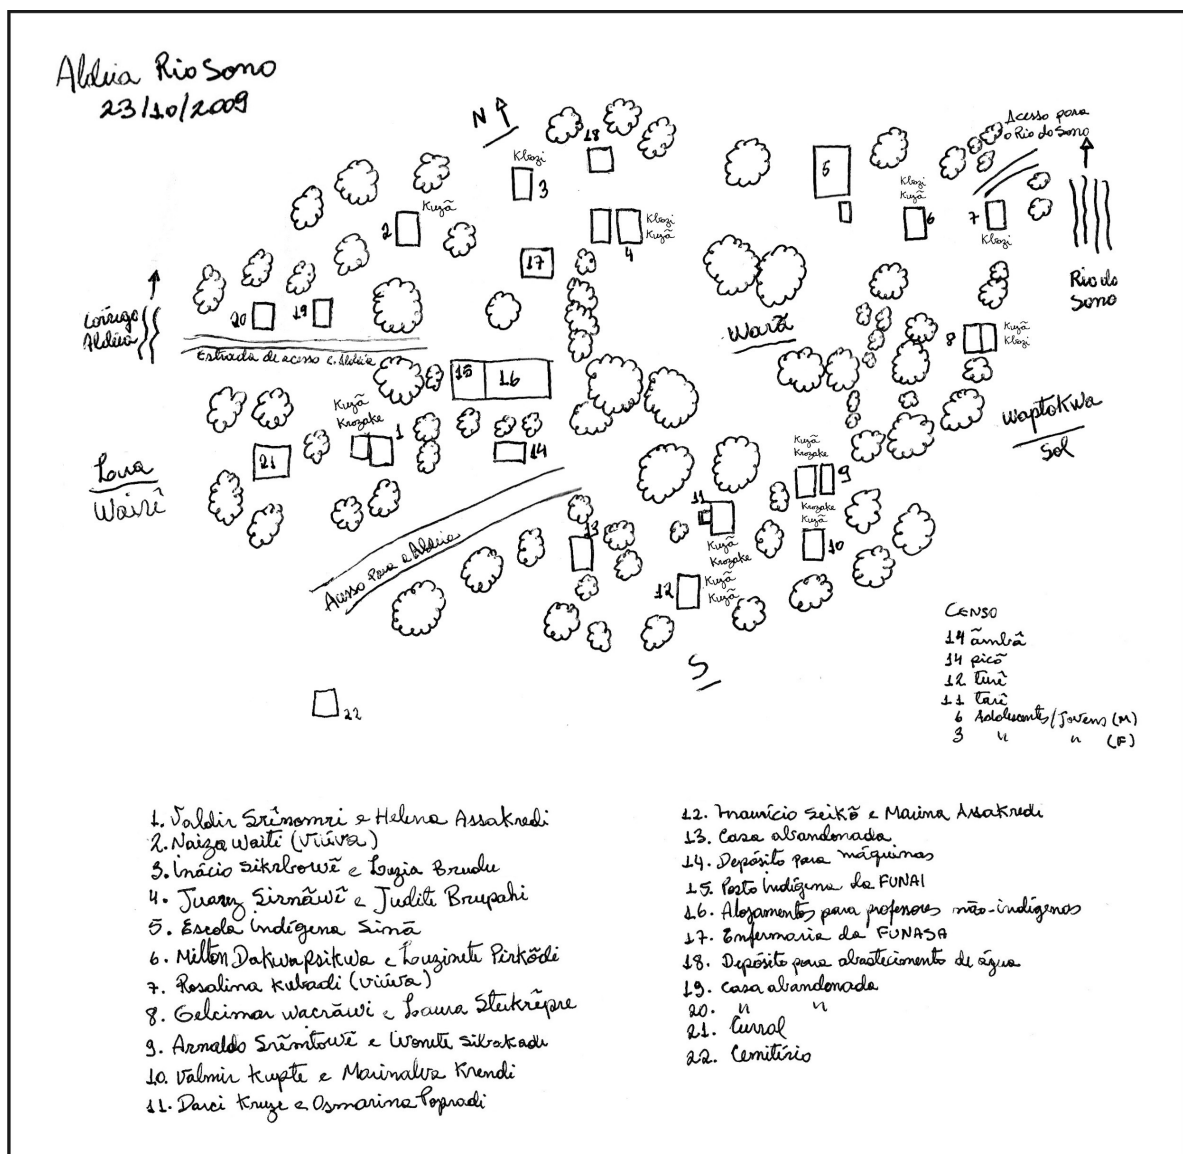 Aldeia Rio Sono
23/10/2009
N
18
Acesso para
o Rio do Sono
Kbazi
3
5
Kuzã
2
Kbazi
Kuzã
6
7
Kbazi
Kbazi
Kuzã
4
17
Rio do
Sono
Córrego
Aldeia
20
19
Estrada de acesso a Aldeia
Warã
8
Kuzã
Kbazi
15
16
Kuzã
Krozake
1
Waptokwa
Sol
21
14
Lua
Wairê
Kuzã
Krozake
9
11
Krozake
Kuzã
10
13
Kuzã
Krozake
Acesso Para a Aldeia
12
Kuzã
Kuzã
S
22
CENSO
14 ãmbâ
14 picõ
12 turê
11 tarê
6 Adolescentes/Jovens (M)
3 " " (F)
1. Valdir Srênomri e Helena Assakredi
2. Naiza Waiti (viúva)
3. Inácio Sikrbowẽ e Luzia Brudu
4. Juarez Sirnãwẽ e Judite Brupahi
5. Escola Indígena Sinã
6. Milton Dakwapsikwa e Louzinete Pirkõdi
7. Rosalina Kubadi (viúva)
8. Gelcimar Wacrãwi e Laura Stukrẽpre
9. Arnaldo Srẽmtowẽ e Ivonete Sibakadi
10. Valmir Kupte e Marinalva Krendi
11. Darci Kruze e Osmarina Popradi
12. Maurício Seikõ e Marina Assakredi
13. Casa abandonada
14. Depósito para máquinas
15. Posto Indígena da FUNAI
16. Alojamentos para professores não-indígenas
17. Enfermaria da FUNASA
18. Depósito para abastecimento de água
19. Casa abandonada
20. " "
21. Curral
22. Cemitério